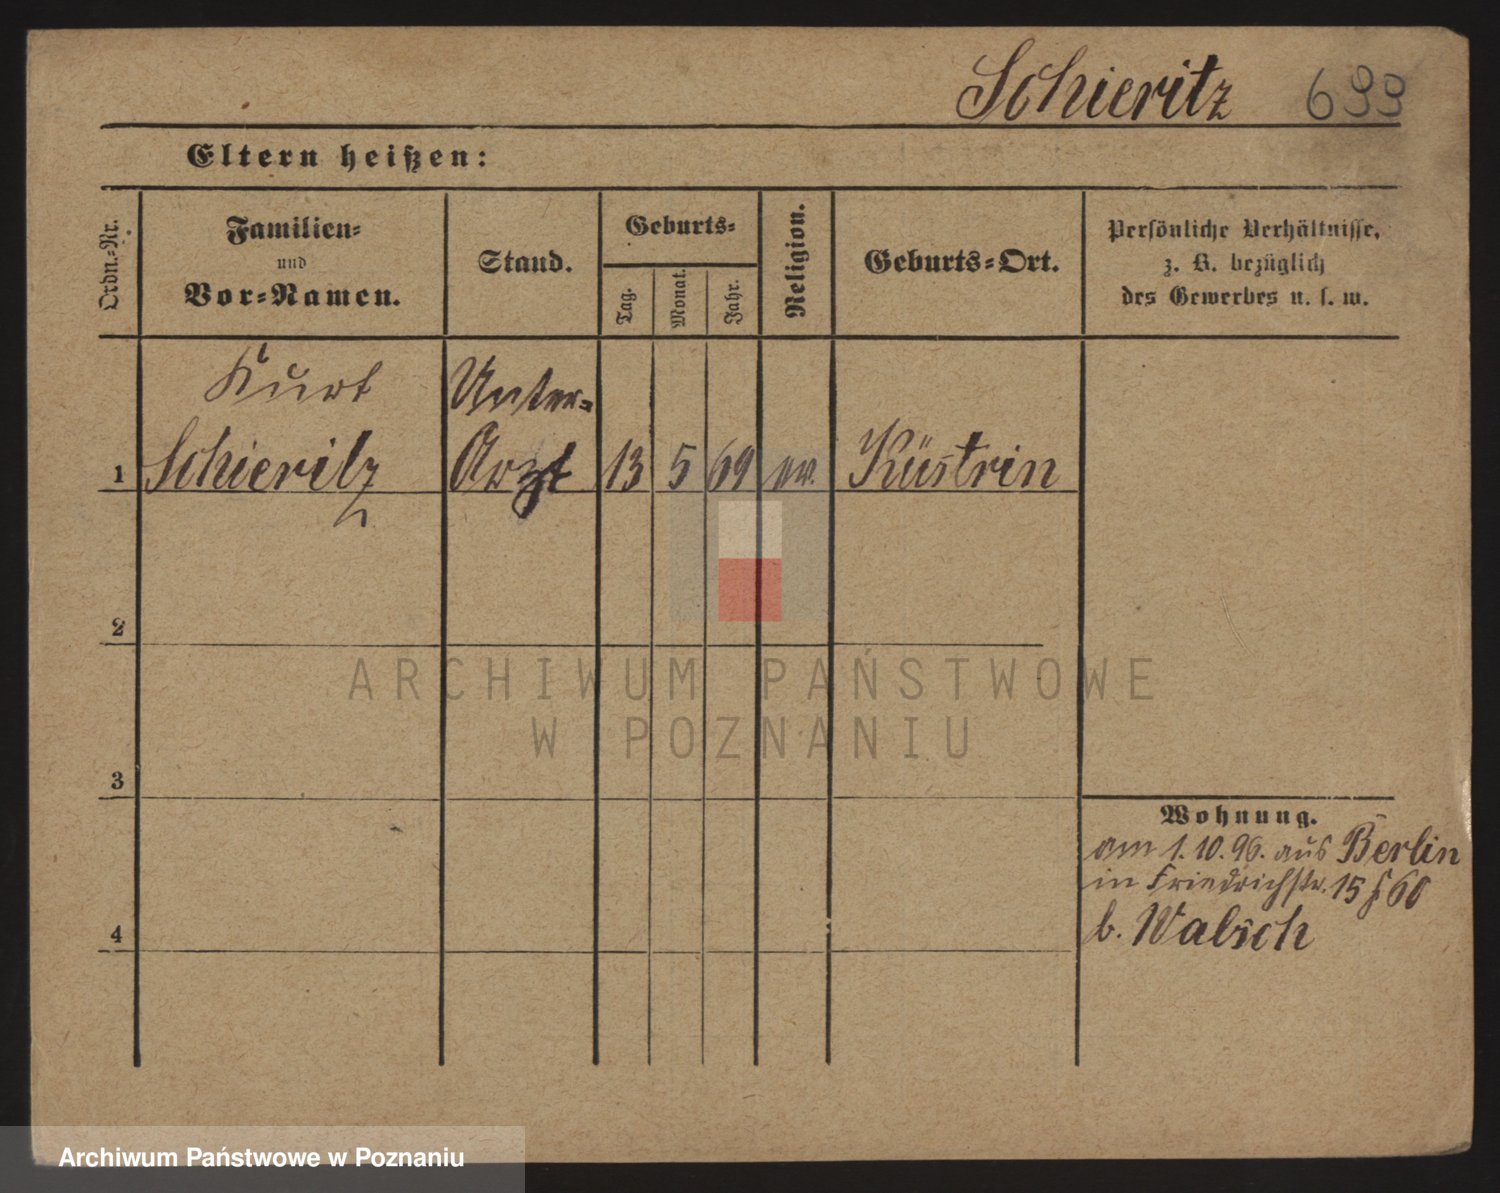 Schieritz 699
Eltern heißen:
Ordn.-Nr.
Familien-
und
Vor-Namen.
Stand.
Geburts-
Tag.
Monat.
Jahr.
Religion.
Geburts-Ort.
Persönliche Verhältnisse,
z. B. bezüglich
des Gewerbes u. s. w.
Kurt Unter-
1 Schieritz Arzt 13 5 69 ev. Küstrin
2
ARCHIWUM PAŃSTWOWE
W POZNANIU
3
Wohnung.
am 1.10.96. aus Berlin
in Friedrichstr. 15 f 60
4
b. Walsch
Archiwum Państwowe w Poznaniu